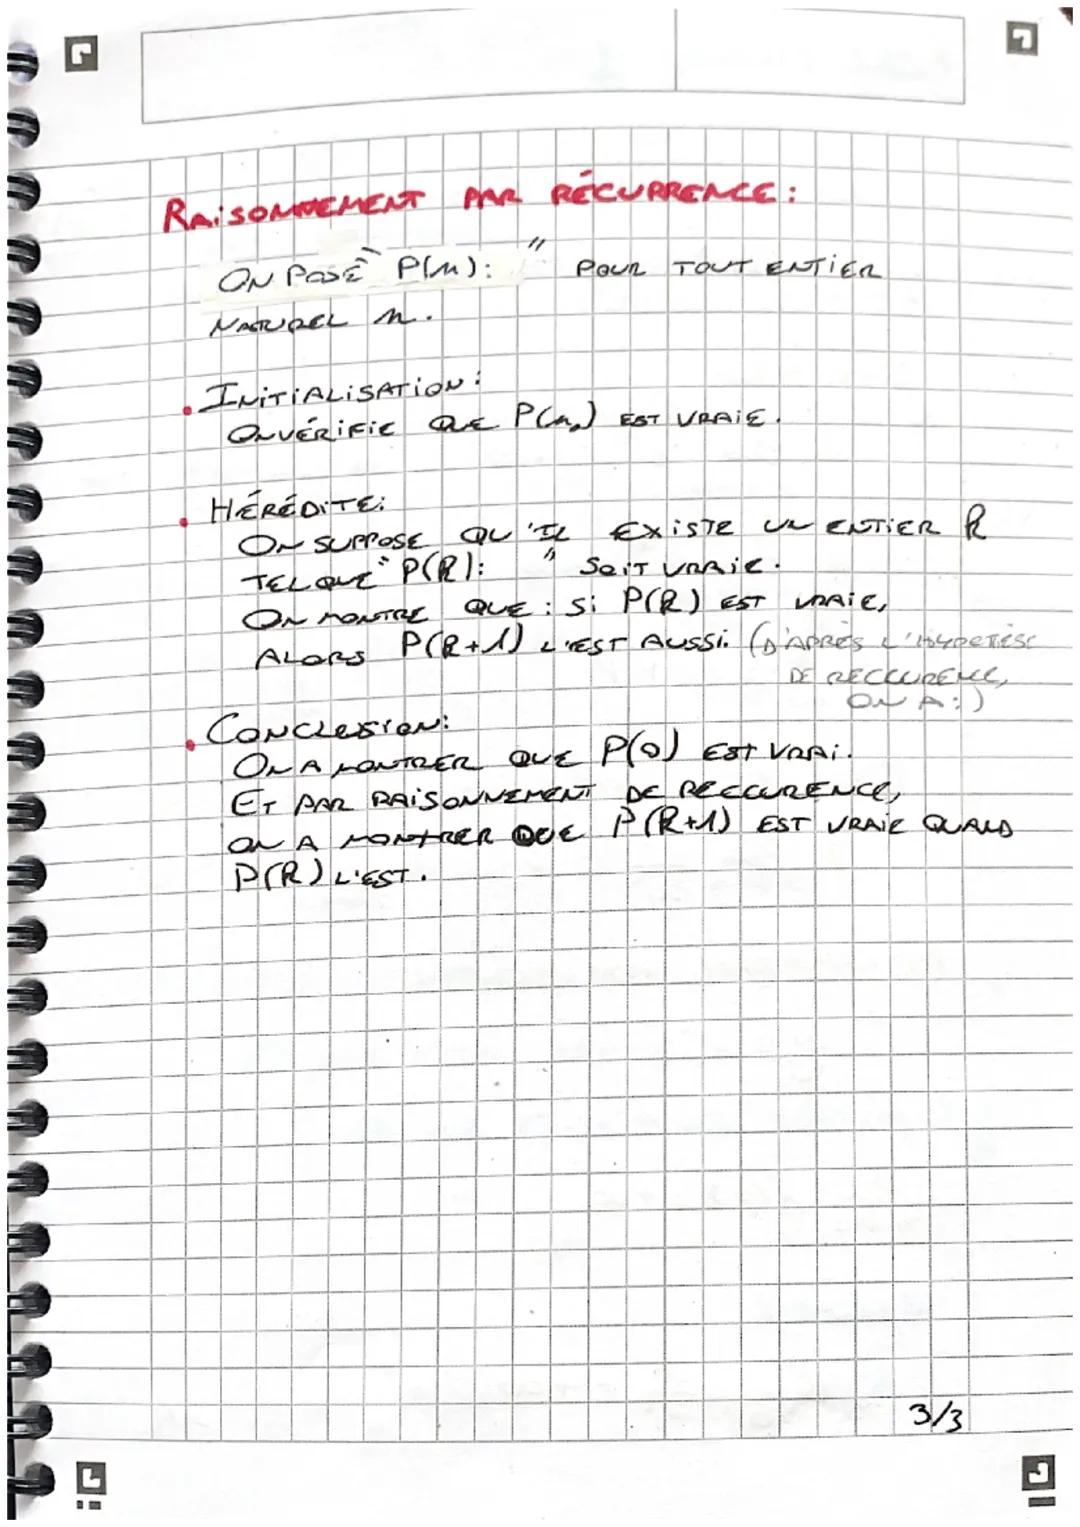 RAISONNEMENT PAR RÉCURRENCE:
ON POSE " P(n): " POUR TOUT ENTIER
NATUREL n.
• INITIALISATION:
ON VÉRIFIE QUE P(n₀) EST VRAIE.
• HÉRÉDITE:
ON SUPPOSE QU'IL EXISTE UN ENTIER k
TEL QUE " P(k): " SOIT VRAIE.
ON MONTRE QUE: Si P(k) EST VRAIE,
ALORS P(k+1) L'EST AUSSI. (D'APRÈS L'HYPOTÈSE
DE RECCURENCE,
ON A:)
• CONCLUSION:
ON A MONTRER QUE P(0) EST VRAI.
ET PAR RAISONNEMENT DE RECCURENCE,
ON A MONTRER QUE P(k+1) EST VRAIE QUAND
P(k) L'EST.
3/3